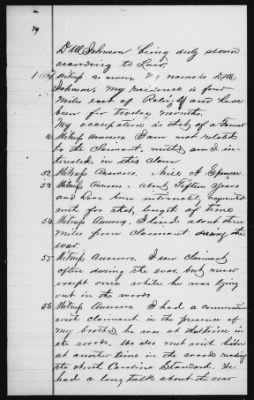 39
D W Johnson being duly sworn
according to Law,
1st Witness answers. My name is D W
Johnson, my residence is four
Miles east of Raleigh and have
been for twelve months,
My occupation is that of a Farmer
2 Witness Answers I am not related
to the Claimant, neither am I in-
terested in this claim
52 Witness Answers. Miles A Spencer
53 Witness Answers. About Fifteen years
and have been intimately acquainted
with for that, length of time
54 Witness Answers, I lived about three
Miles from Claimant during the
war
55 Witness Answers, I saw Claimant
often during the war, but never
except once while he was lying
out in the woods
56 Witness Answers I had a conversation
with claimant in the presence of
my brother, he was at that time in
the woods. We also met with him
at another time in the woods reading
the North Carolina Standard. We
had a long talk about the war